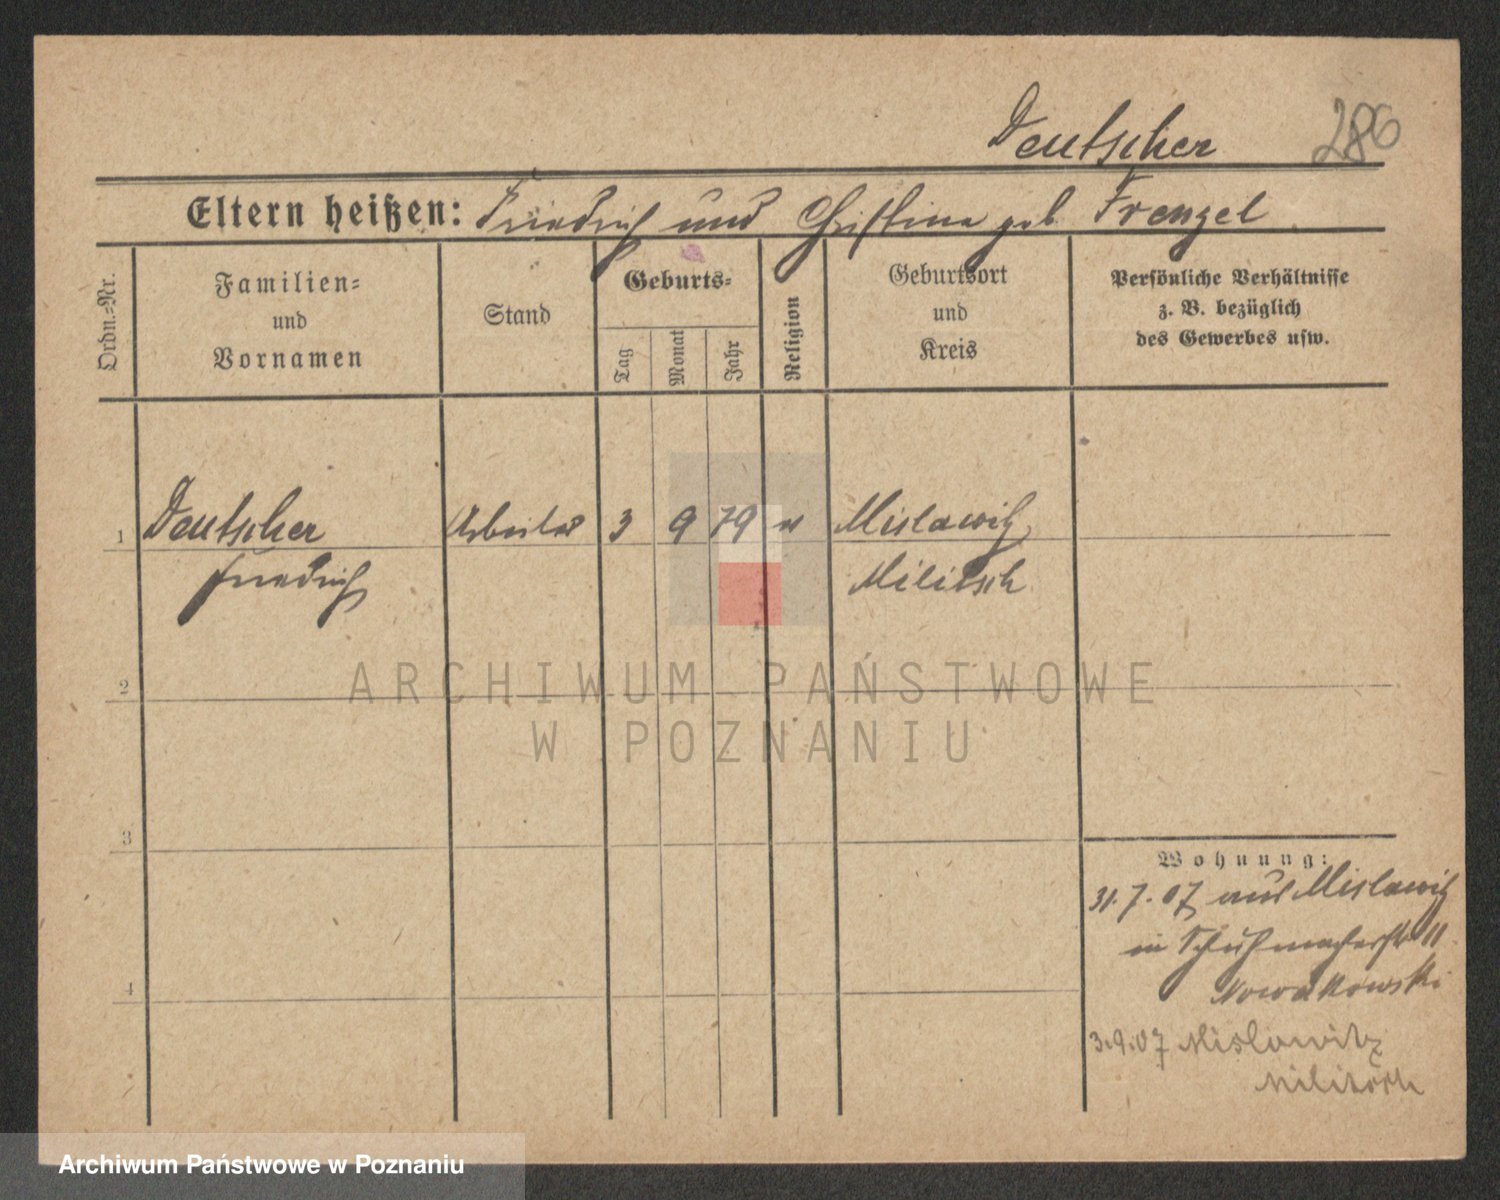 Deutscher 286
Eltern heißen: Friedrich und Christina geb. Frenzel
Ordn.-Nr.
Familien-
und
Vornamen
Stand
Geburts-
Tag
Monat
Jahr
Religion
Geburtsort
und
Kreis
Persönliche Verhältnisse
z. B. bezüglich
des Gewerbes usw.
1 Deutscher Arbeiter 3 9 79 Mislawitz
Friedrich Militsch
2
3
4
Wohnung:
31.7.07 aus Mislawitz
in Schuhmacherstr 11
Nowakowski
3.9.07 Mislawitz
Militsch
ARCHIWUM PAŃSTWOWE
W POZNANIU
Archiwum Państwowe w Poznaniu